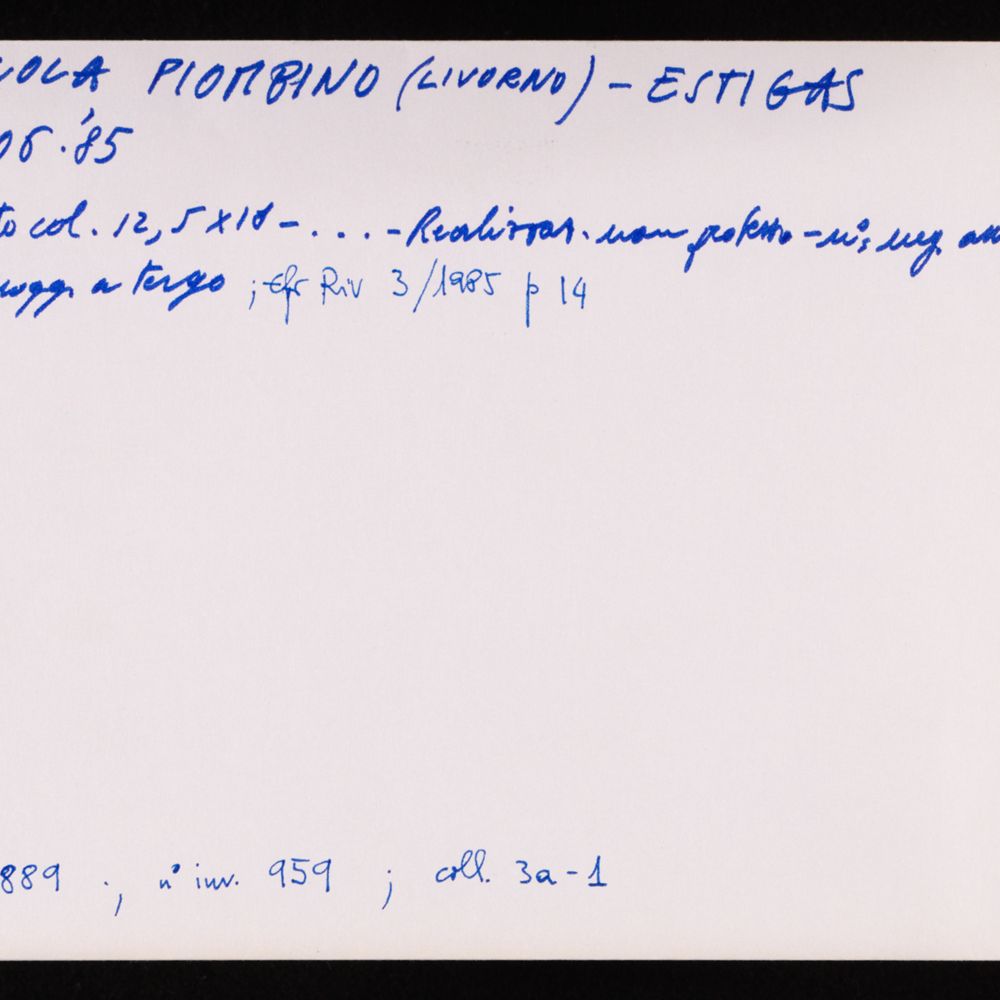 UOLA PIOMBINO (LIVORNO) - ESTIGAS
06.'85
to col. 12,5x18 - . . . - Realizzaz. non - n° neg.
sogg. a tergo ; cfr Riv 3/1985 p 14
889 ; n° inv. 959 ; coll. 3a-1